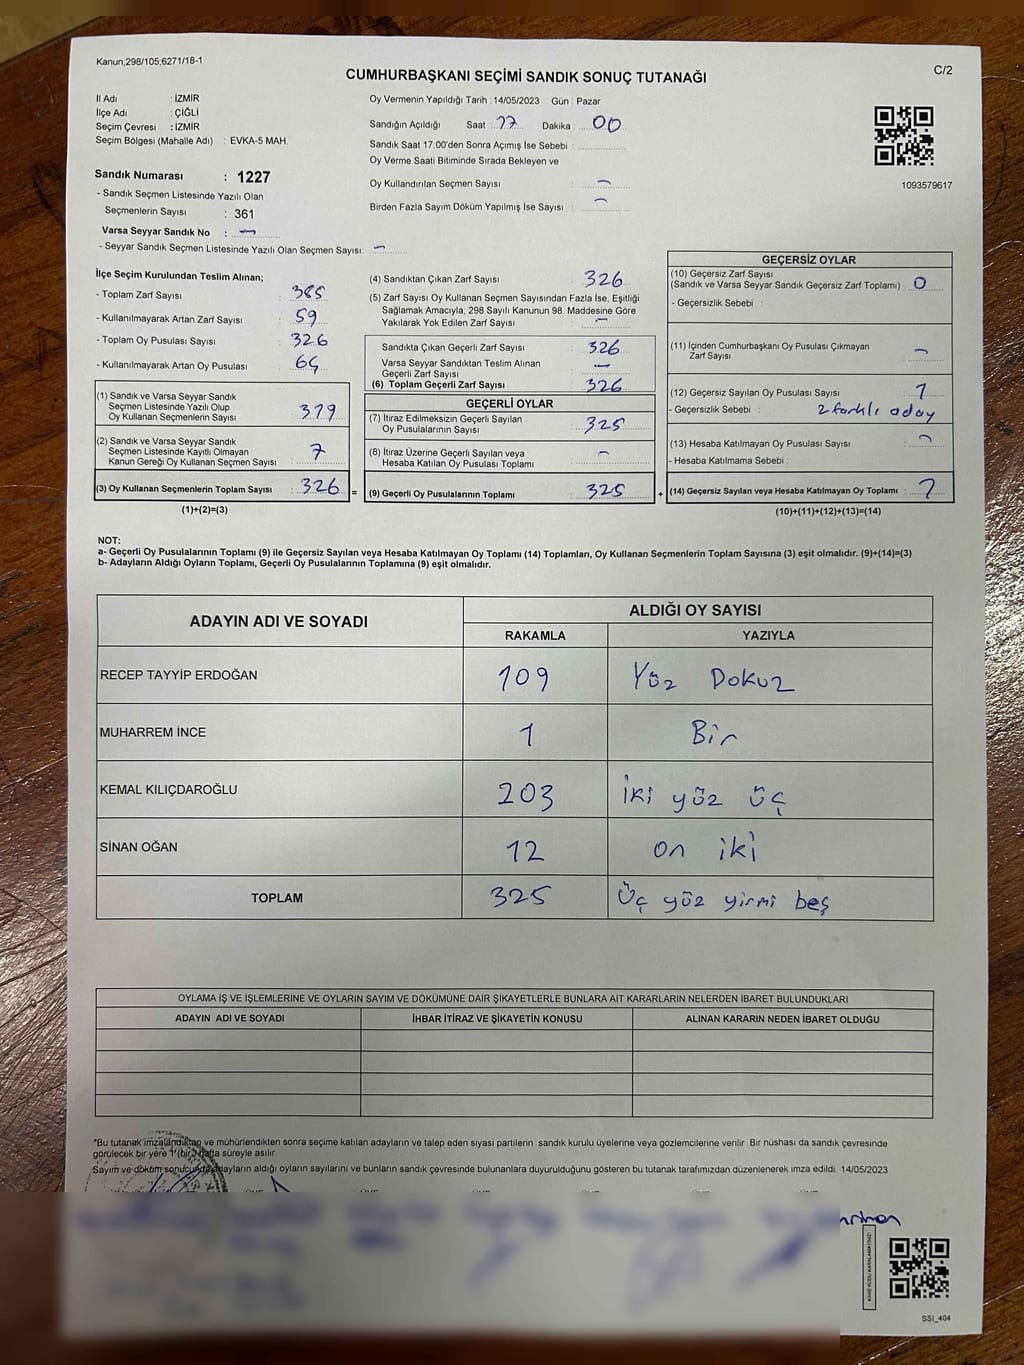 Kanun;298/105;6271/18-1
C/2
CUMHURBAŞKANI SEÇİMİ SANDIK SONUÇ TUTANAĞI
İl Adı : İZMİR
İlçe Adı : ÇİĞLİ
Seçim Çevresi : İZMİR
Seçim Bölgesi (Mahalle Adı) : EVKA-5 MAH.
Oy Vermenin Yapıldığı Tarih : 14/05/2023 Gün : Pazar
Sandığın Açıldığı Saat : 17 Dakika : 00
Sandık Saat 17:00'den Sonra Açımış İse Sebebi :
Oy Verme Saati Bitiminde Sırada Bekleyen ve
Oy Kullandırılan Seçmen Sayısı : -
Birden Fazla Sayım Döküm Yapılmış İse Sayısı : -
1093579617
Sandık Numarası : 1227
- Sandık Seçmen Listesinde Yazılı Olan
Seçmenlerin Sayısı : 361
Varsa Seyyar Sandık No : -
- Seyyar Sandık Seçmen Listesinde Yazılı Olan Seçmen Sayısı: -
İlçe Seçim Kurulundan Teslim Alınan;
- Toplam Zarf Sayısı : 385
- Kullanılmayarak Artan Zarf Sayısı : 59
- Toplam Oy Pusulası Sayısı : 326
- Kullanılmayarak Artan Oy Pusulası :
(1) Sandık ve Varsa Seyyar Sandık
Seçmen Listesinde Yazılı Olup
Oy Kullanan Seçmenlerin Sayısı : 319
(2) Sandık ve Varsa Seyyar Sandık
Seçmen Listesinde Kayıtlı Olmayan
Kanun Gereği Oy Kullanan Seçmen Sayısı : 7
(3) Oy Kullanan Seçmenlerin Toplam Sayısı : 326 =
(1)+(2)=(3)
(4) Sandıktan Çıkan Zarf Sayısı : 326
(5) Zarf Sayısı Oy Kullanan Seçmen Sayısından Fazla İse, Eşitliği
Sağlamak Amacıyla; 298 Sayılı Kanunun 98. Maddesine Göre
Yakılarak Yok Edilen Zarf Sayısı : -
Sandıkta Çıkan Geçerli Zarf Sayısı : 326
Varsa Seyyar Sandıktan Teslim Alınan
Geçerli Zarf Sayısı : -
(6) Toplam Geçerli Zarf Sayısı : 326
GEÇERLİ OYLAR
(7) İtiraz Edilmeksizin Geçerli Sayılan
Oy Pusulalarının Sayısı : 325
(8) İtiraz Üzerine Geçerli Sayılan veya
Hesaba Katılan Oy Pusulası Toplamı : -
(9) Geçerli Oy Pusulalarının Toplamı : 325 +
GEÇERSİZ OYLAR
(10) Geçersiz Zarf Sayısı
(Sandık ve Varsa Seyyar Sandık Geçersiz Zarf Toplamı) : 0
- Geçersizlik Sebebi :
(11) İçinden Cumhurbaşkanı Oy Pusulası Çıkmayan
Zarf Sayısı : -
(12) Geçersiz Sayılan Oy Pusulası Sayısı : 1
- Geçersizlik Sebebi : 2 farklı aday
(13) Hesaba Katılmayan Oy Pusulası Sayısı : -
- Hesaba Katılmama Sebebi :
(14) Geçersiz Sayılan veya Hesaba Katılmayan Oy Toplamı : 1
(10)+(11)+(12)+(13)=(14)
NOT:
a- Geçerli Oy Pusulalarının Toplamı (9) ile Geçersiz Sayılan veya Hesaba Katılmayan Oy Toplamı (14) Toplamları, Oy Kullanan Seçmenlerin Toplam Sayısına (3) eşit olmalıdır. (9)+(14)=(3)
b- Adayların Aldığı Oyların Toplamı, Geçerli Oy Pusulalarının Toplamına (9) eşit olmalıdır.
ADAYIN ADI VE SOYADI ALDIĞI OY SAYISI
RAKAMLA YAZIYLA
RECEP TAYYİP ERDOĞAN 109 Yüz Dokuz
MUHARREM İNCE 1 Bir
KEMAL KILIÇDAROĞLU 203 İki yüz üç
SİNAN OĞAN 12 on iki
TOPLAM 325 Üç yüz yirmi beş
OYLAMA İŞ VE İŞLEMLERİNE VE OYLARIN SAYIM VE DÖKÜMÜNE DAİR ŞİKAYETLERLE BUNLARA AİT KARARLARIN NELERDEN İBARET BULUNDUKLARI
ADAYIN ADI VE SOYADI İHBAR İTİRAZ VE ŞİKAYETİN KONUSU ALINAN KARARIN NEDEN İBARET OLDUĞU
*Bu tutanak imzalandıktan ve mühürlendikten sonra seçime katılan adayların ve talep eden siyasi partilerin sandık kurulu üyelerine veya gözlemcilerine verilir. Bir nüshası da sandık çevresinde
görülecek bir yere 1 (bir) hafta süreyle asılır.
Sayım ve döküm sonucunda adayların aldığı oyların sayılarını ve bunların sandık çevresinde bulunanlara duyurulduğunu gösteren bu tutanak tarafımızdan düzenlenerek imza edildi. 14/05/2023
KARE KODU KARALAMAYINIZ!
SSI_404